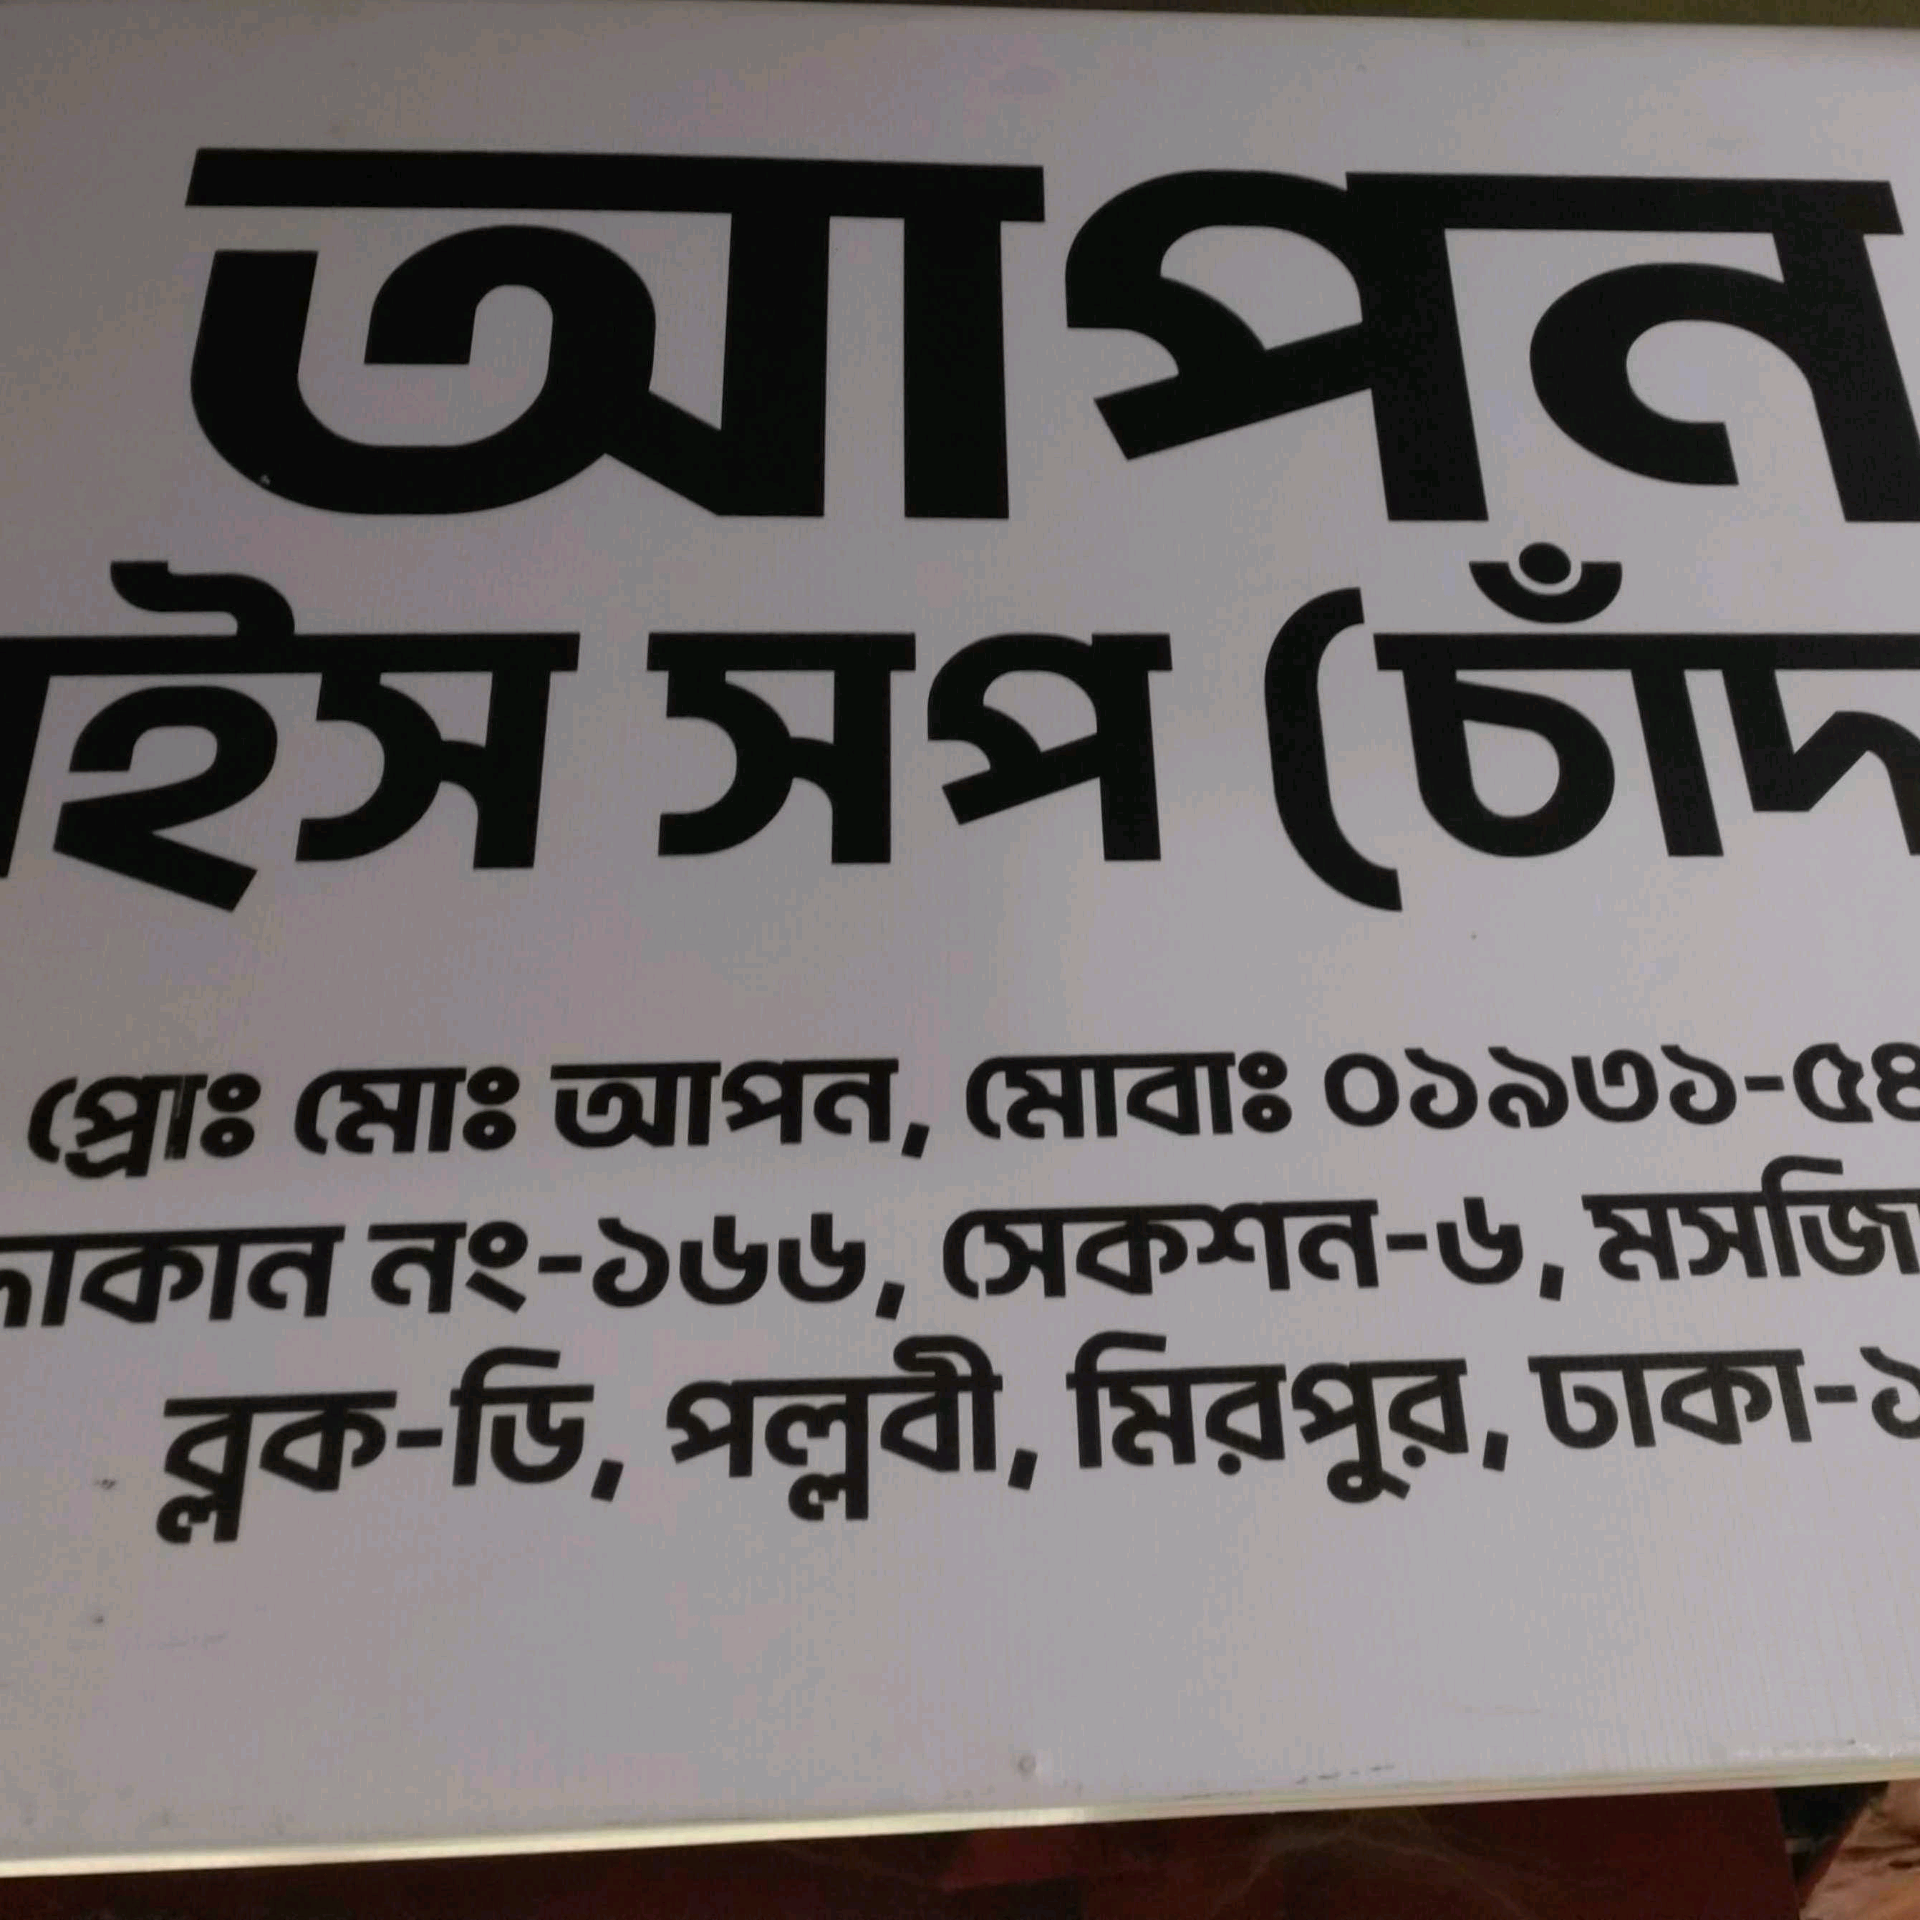 আপন
াইস সপ (চাঁদ
প্রোঃ মোঃ আপন, মোবাঃ ০১৯৩১-৫৪
দোকান নং-১৬৬, সেকশন-৬, মসজি
ব্লক-ডি, পল্লবী, মিরপুর, ঢাকা-১